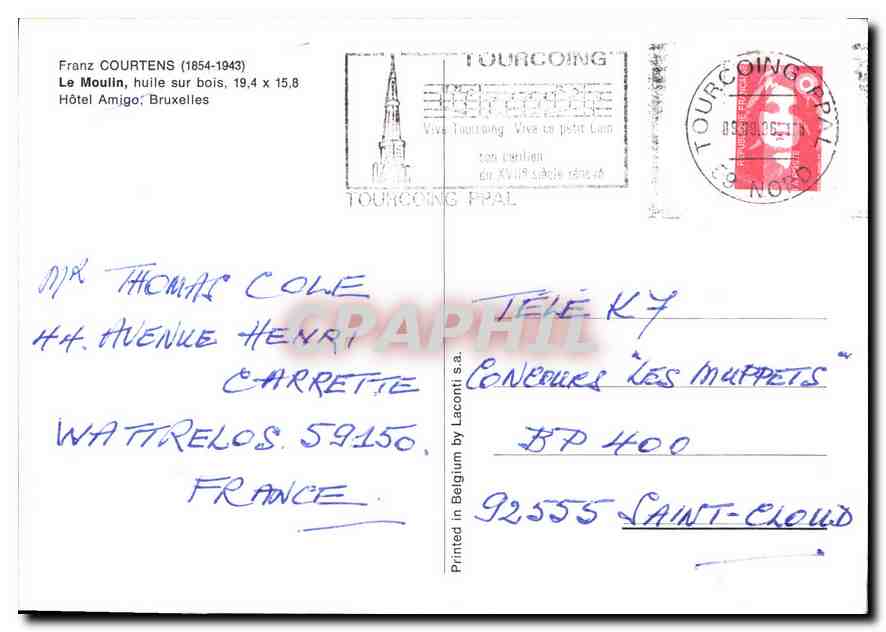 Franz COURTENS (1854-1943)
Le Moulin, huile sur bois, 19,4 x 15,8
Hôtel Amigo, Bruxelles
TOURCOING
Vive Tourcoing Vive ce petit coin
son carillon
du XVIIe siècle rénové
TOURCOING PPAL
TOURCOING PPAL
59 NORD
REPUBLIQUE FRANÇAISE
MR THOMAS COLE
44. AVENUE HENRI
CARRETTE
WATTRELOS. 59150.
FRANCE.
CPAPHIL
Printed in Belgium by Laconti s.a.
TÉLÉ K7
CONCOURS "LES MUPPETS"
BP 400
92555 SAINT-CLOUD